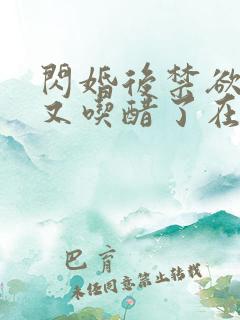 閃婚後禁欲
又喫醋了在
巴育
未经同意禁止转载